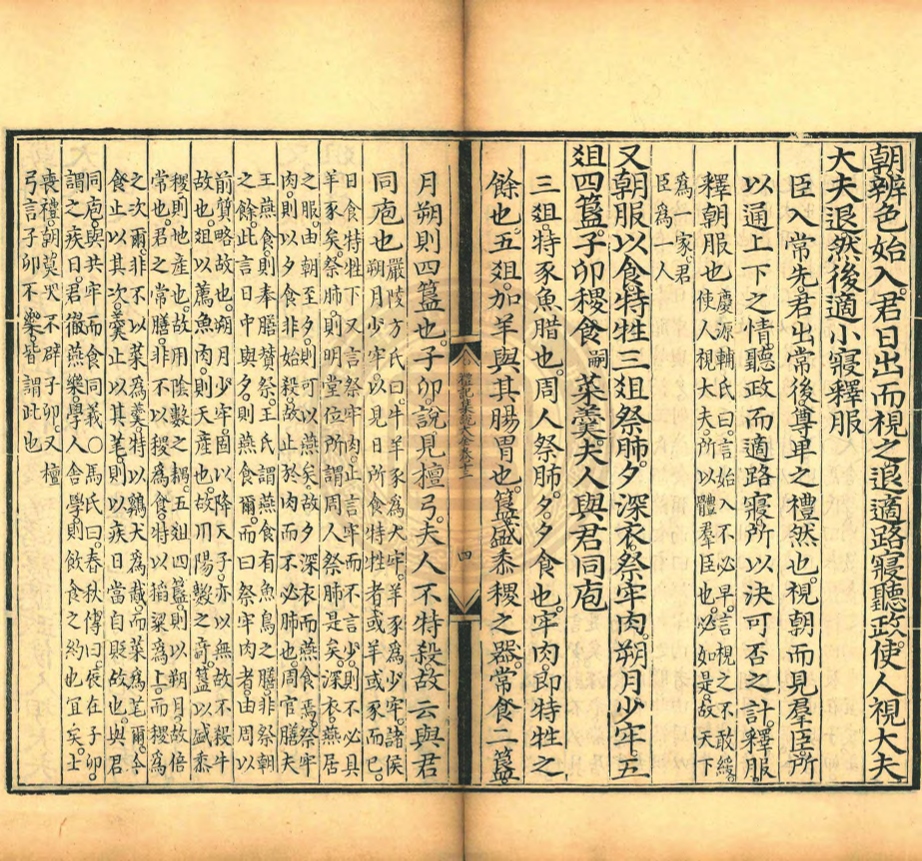 朝辨色始入。君日出而視之。退適路寢聽政。使人視大夫
大夫退然後適小寢釋服
臣入常先。君出常後。尊卑之禮然也。視朝而見羣臣。所
以通上下之情。聽政而適路寢。所以決可否之計。釋服。
釋朝服也
慶源輔氏曰。言始入。不必早。言視之。不敢緩。
使人視大夫。所以體羣臣也。必如是。故天下
爲一家。君
臣爲一人
又朝服以食。特牲三俎祭肺。夕深衣。祭牢肉。朔月少牢。五
俎四簋。子卯稷食嗣菜羹。夫人與君同庖
三俎。特豕魚腊也。周人祭肺。夕。夕食也。牢肉。即特牲之
餘也。五俎。加羊與其腸胃也。簋。盛黍稷之器。常食二簋。
禮記集說大全卷十二 四
月朔則四簋也。子卯。說見檀弓。夫人不特殺。故云與君
同庖也
嚴陵方氏曰。牛羊豕爲大牢。羊豕爲少牢。諸侯
朔月少牢。以見日所食特牲者。或羊或豕而已。
日食特牲。下又言祭牢肉。止言牢而不言少。則不必具
羊豕矣。祭肺。則明堂位所謂周人祭肺是矣。深衣。燕居
之服。由朝至夕。則可以燕矣。故夕深衣而燕食焉。祭牢
肉。則以夕食非始殺。故止於肉而不必肺也。周官膳夫
王燕食。則奉膳贊祭。王氏謂燕食有魚鳥之膳。非祭朝
之餘。此言日中與夕。則燕食爾。而曰祭牢肉者。由周以
前質略故也。朔月少牢。固以降天子。亦以無故不殺牛
故也。俎以薦魚肉。則天產也。故用陽數之奇。簋以盛黍
稷。則地之產也。故用陰數之耦。五俎四簋。則以朔月。故倍
常也。君之常膳。非不以稷爲食。特以稻粱爲上。而稷爲
之次爾。非不以菜爲羹。特以鷄犬爲胾。而菜爲芼爾。今
食止以其次。羹止以其芼。則以疾日當自貶故也。與君
同庖。與共牢而食同義。○馬氏曰。春秋傳曰。辰在子卯。
謂之疾日。君徹燕樂。學人舍學。則飲食之約也宜矣。士
喪禮。朝莫哭。不辟子卯。又檀
弓言子卯不樂。皆謂此也